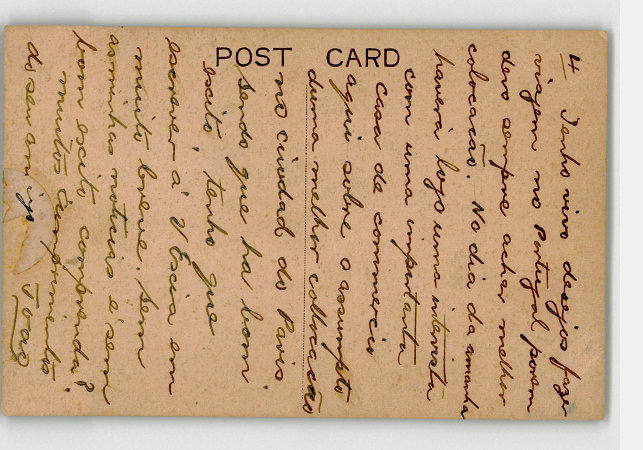 POST CARD
4 Tenho vivo desejos faze
viagem no Portugal porem
devo sempre achar melhor
colocacão. No dia da amanha
haverá logo uma intervista
com uma importanta
casa de commercio
aqui sobre o assumpto
duma melhor collocacão
no ciudad do Paris
sendo que ha bom
escito, tenho que
escrever á V Escia em
muito breve. Sem
as minhas noticias é sem
bom escito comprenda?
muitos cumprimentos
do seu amigo
João